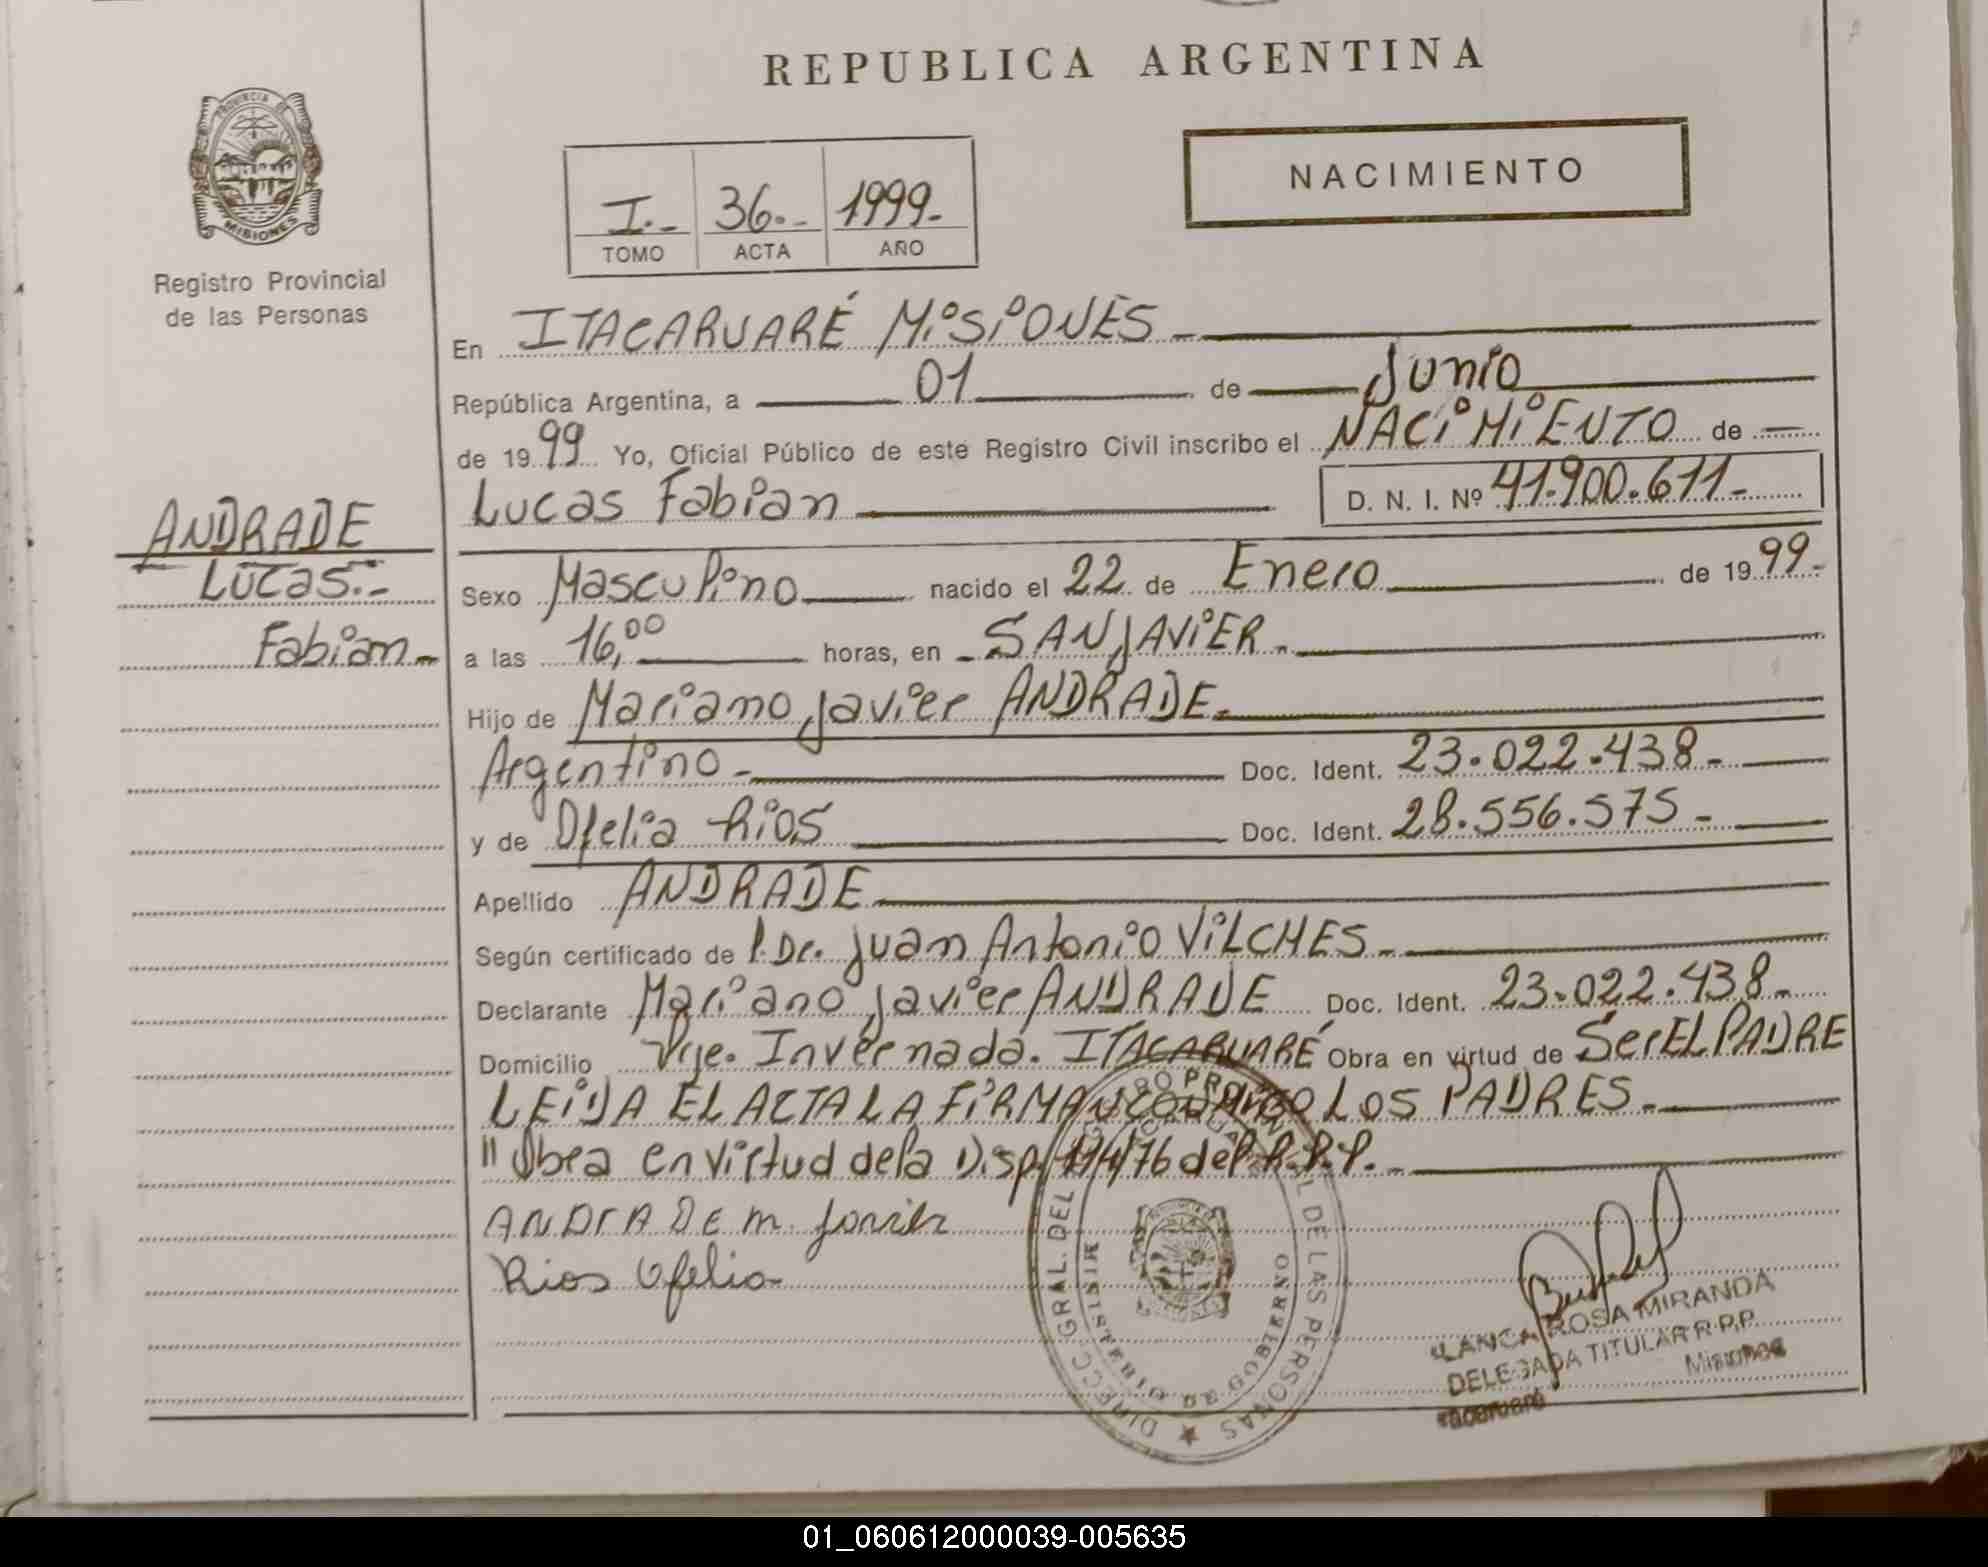 REPUBLICA ARGENTINA
PROVINCIA DE
MISIONES
Registro Provincial
de las Personas
NACIMIENTO
I.- 36.- 1999.-
TOMO ACTA AÑO
En ITACARUARÉ MISIONES.-
República Argentina, a 01 de Junio
de 1999 Yo, Oficial Público de este Registro Civil inscribo el NACIMIENTO de
Lucas Fabian D. N. I. Nº 41.900.611.-
ANDRADE
Lucas.-
Fabian.-
Sexo Masculino nacido el 22 de Enero de 1999.-
a las 16,00 horas, en SAN JAVIER.-
Hijo de Mariano Javier ANDRADE.-
Argentino.- Doc. Ident. 23.022.438.-
y de Ofelia Rios Doc. Ident. 28.556.575.-
Apellido ANDRADE
Según certificado de P. Dr. Juan Antonio VILCHES.-
Declarante Mariano Javier ANDRADE Doc. Ident. 23.022.438.-
Domicilio Pje. Invernada. ITACARUARÉ Obra en virtud de Ser EL PADRE
LEIDA EL ACTA LA FIRMAN CONMIGO LOS PADRES.-
" Obra en virtud de la Disp. 114/76 del R.P.P.-
ANDRADE M. Javier
Rios Ofelia
DIRECC. GRAL. DEL REGISTRO PROVINCIAL DE LAS PERSONAS
MINISTERIO DE GOBIERNO
BLANCA ROSA MIRANDA
DELEGADA TITULAR R.P.P.
Itacaruaré Misiones
01_060612000039-005635